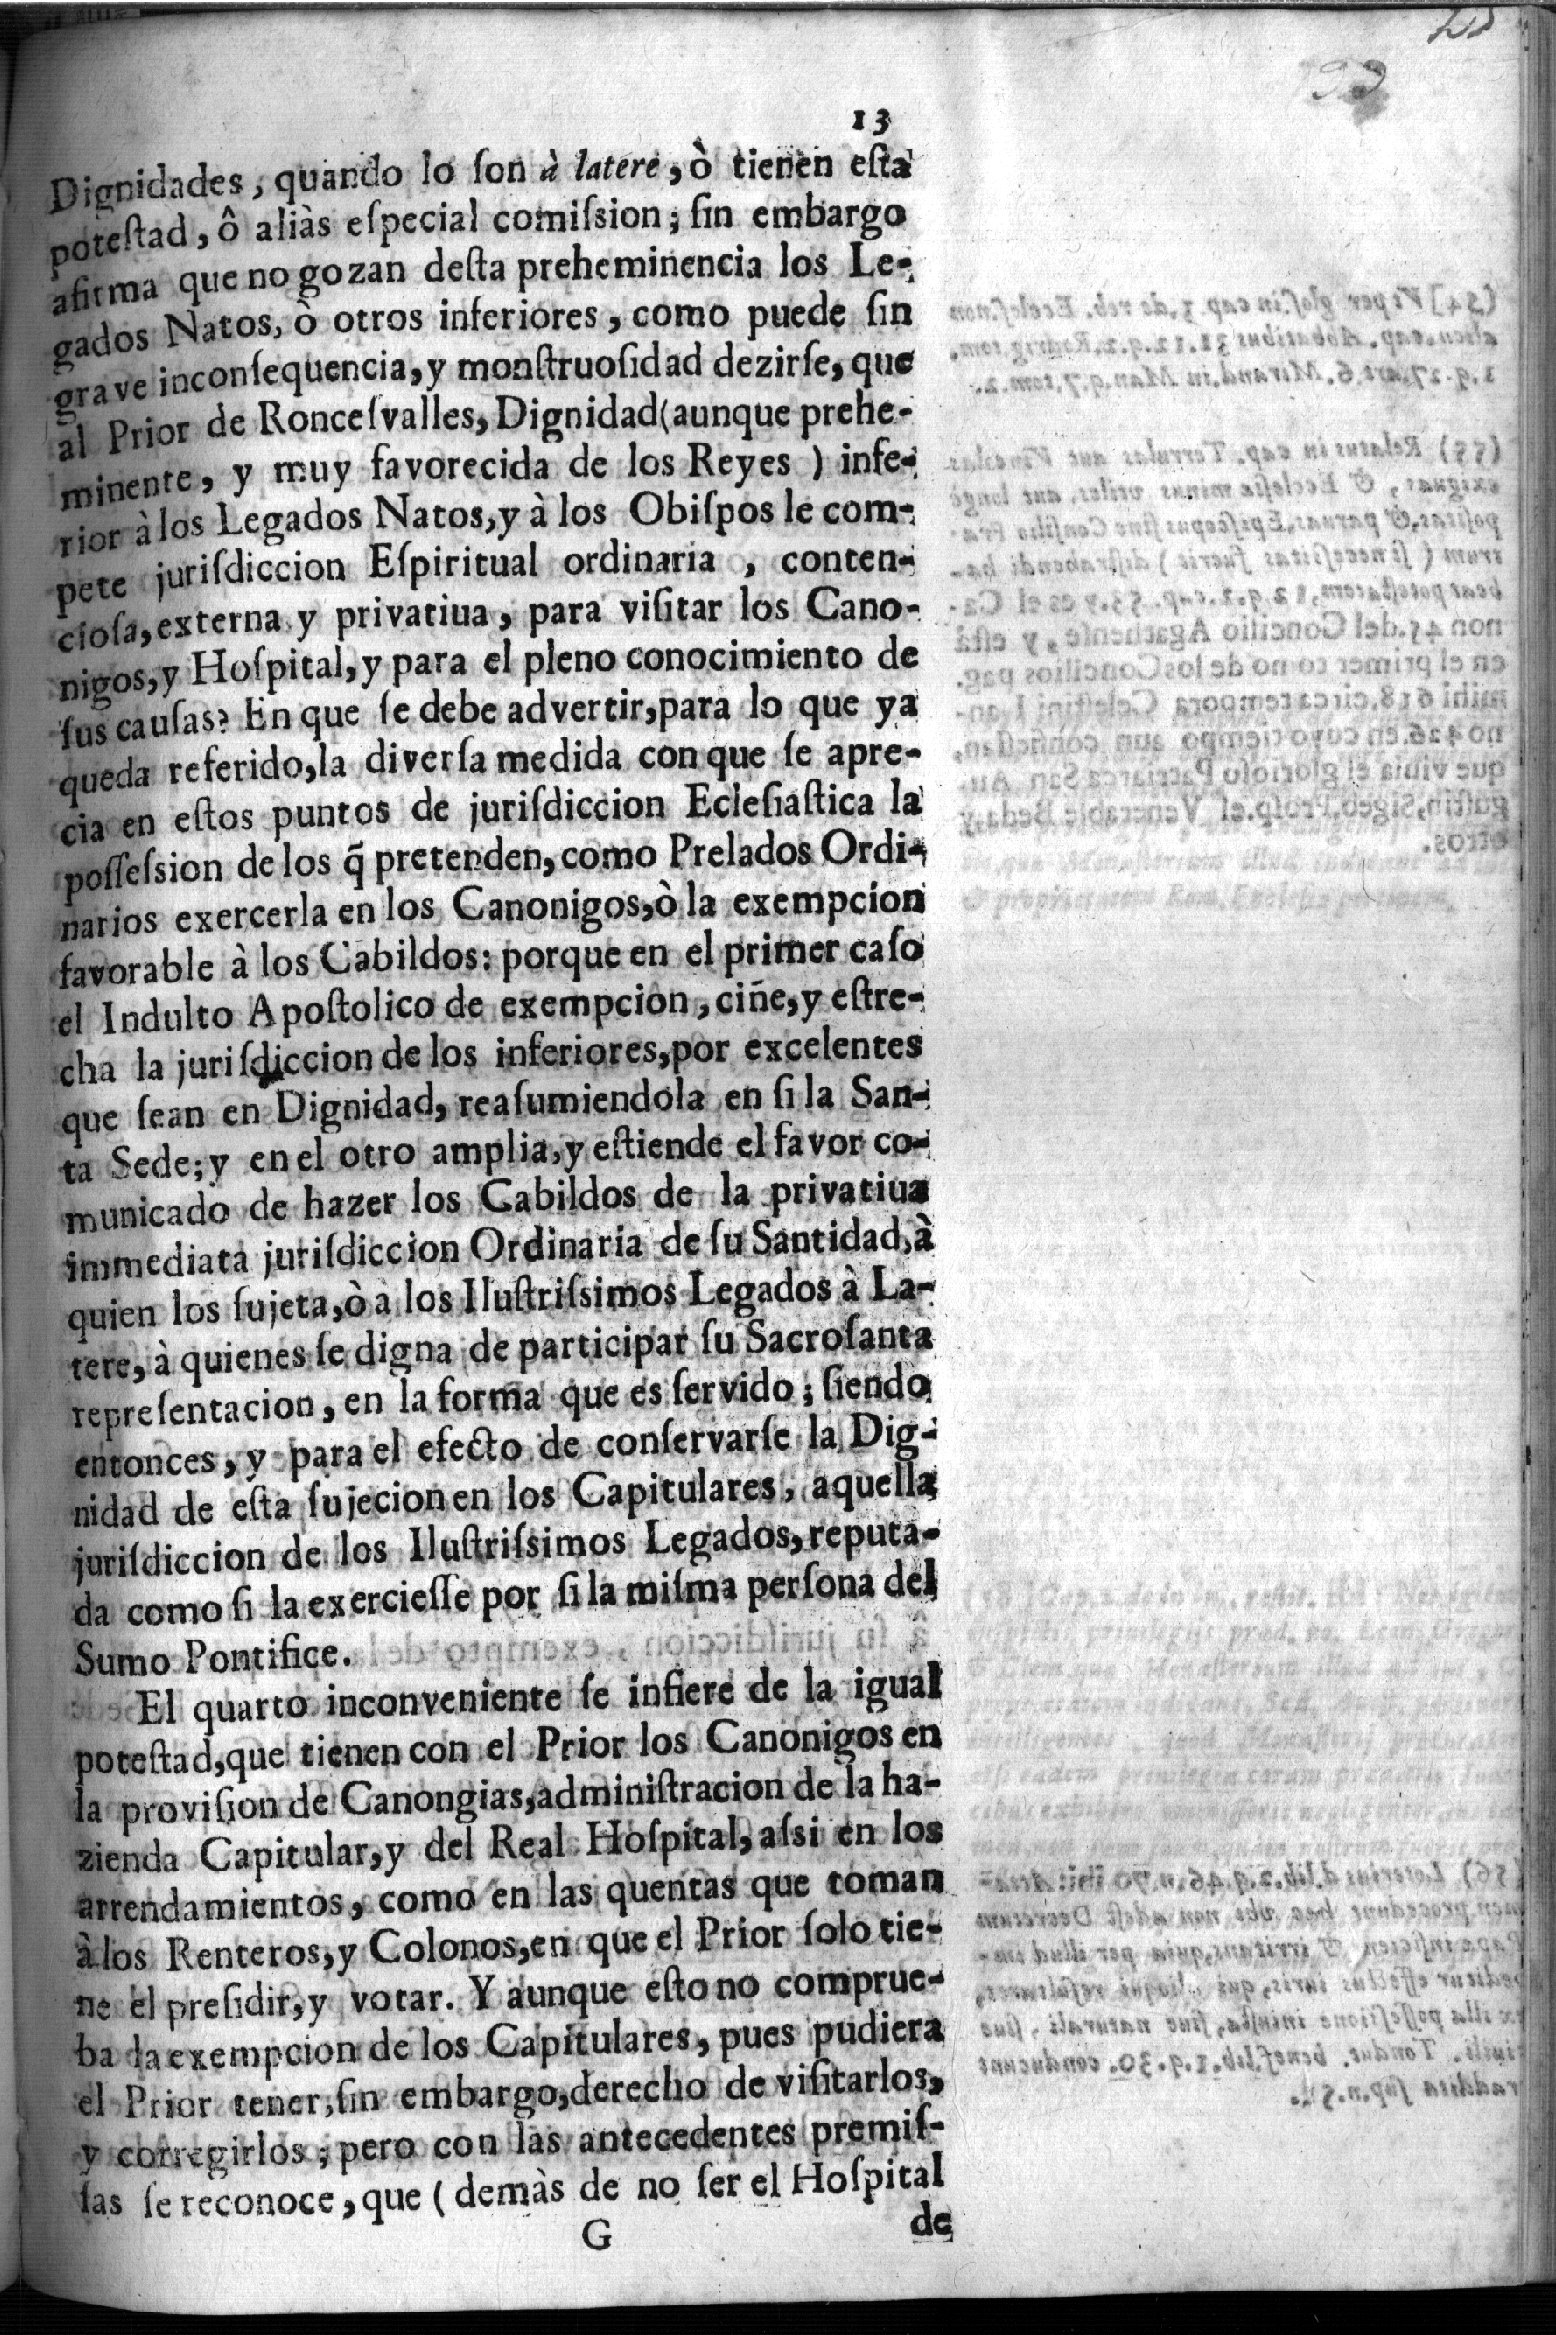 13
Dignidades, quando lo ſon à latere, ò tienen eſta
poteſtad, ô aliàs eſpecial comiſsion; ſin embargo
afirma que no gozan deſta preheminencia los Le-
gados Natos, ò otros inferiores, como puede ſin
grave inconſequencia, y monſtruoſidad dezirſe, que
al Prior de Ronceſvalles, Dignidad (aunque prehe-
minente, y muy favorecida de los Reyes) infe-
rior à los Legados Natos, y à los Obiſpos le com-
pete juriſdiccion Eſpiritual ordinaria, conten-
cioſa, externa y privatiua, para viſitar los Cano-
nigos, y Hoſpital, y para el pleno conocimiento de
ſus cauſas? En que ſe debe advertir, para lo que ya
queda referido, la diverſa medida con que ſe apre-
cia en eſtos puntos de juriſdiccion Ecleſiaſtica la
poſſeſsion de los q̃ pretenden, como Prelados Ordi-
narios exercerla en los Canonigos, ò la exempcion
favorable à los Cabildos: porque en el primer caſo
el Indulto Apoſtolico de exempcion, ciñe, y eſtre-
cha la juriſdiccion de los inferiores, por excelentes
que ſean en Dignidad, reaſumiendola en ſi la San-
ta Sede; y en el otro amplia, y eſtiende el favor co-
municado de hazer los Cabildos de la privatiua
immediata juriſdiccion Ordinaria de ſu Santidad, à
quien los ſujeta, ò a los Iluſtriſsimos Legados à La-
tere, à quienes ſe digna de participar ſu Sacroſanta
repreſentacion, en la forma que es ſervido; ſiendo
entonces, y para el efecto de conſervarſe la Dig-
nidad de eſta ſujecion en los Capitulares, aquella
juriſdiccion de los Iluſtriſsimos Legados, reputa-
da como ſi la exercieſſe por ſi la miſma perſona del
Sumo Pontifice.
El quarto inconveniente ſe infiere de la igual
poteſtad, que tienen con el Prior los Canonigos en
la proviſion de Canongias, adminiſtracion de la ha-
zienda Capitular, y del Real Hoſpital, aſsi en los
arrendamientos, como en las quentas que toman
à los Renteros, y Colonos, en que el Prior ſolo tie-
ne el preſidir, y votar. Y aunque eſto no comprue-
ba la exempcion de los Capitulares, pues pudiera
el Prior tener, ſin embargo, derecho de viſitarlos,
y corregirlos; pero con las antecedentes premiſ-
ſas ſe reconoce, que (demàs de no ſer el Hoſpital
G
de